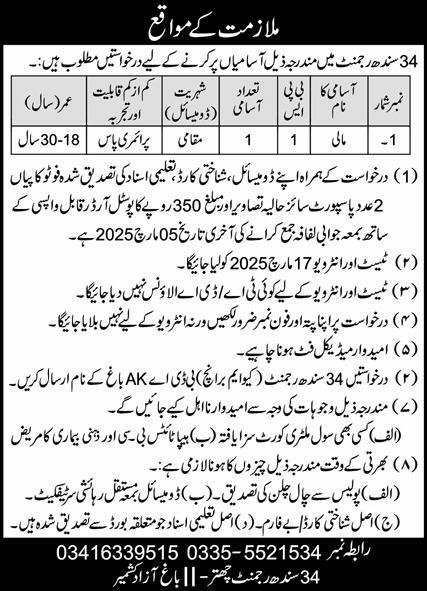 ملازمت کے مواقع
34 سندھ رجمنٹ میں مندرجہ ذیل آسامیاں پر کرنے کے لیے درخواستیں مطلوب ہیں:۔
نمبر شمار آسامی کا نام بی پی ایس تعداد آسامی شہریت (ڈومیسائل) کم از کم قابلیت اور تجربہ عمر (سال)
1۔ مالی 1 1 مقامی پرائمری پاس 18-30 سال
(۱) درخواست کے ہمراہ اپنے ڈومیسائل، شناختی کارڈ، تعلیمی اسناد کی تصدیق شدہ فوٹو کاپیاں
2 عدد پاسپورٹ سائز حالیہ تصاویر اور مبلغ 350 روپے کا پوسٹل آرڈر قابل واپسی کے
ساتھ بمعہ جوابی لفافہ جمع کرانے کی آخری تاریخ 05 مارچ 2025 ہے۔
(۲) ٹیسٹ اور انٹرویو 17 مارچ 2025 کو لیا جائیگا۔
(۳) ٹیسٹ اور انٹرویو کے لیے کوئی ٹی اے / ڈی اے الاؤنس نہیں دیا جائیگا۔
(۴) درخواست پر اپنا پتہ اور فون نمبر ضرور لکھیں ورنہ انٹرویو کے لیے نہیں بلایا جائیگا۔
(۵) امیدوار میڈیکل فٹ ہونا چاہیے۔
(۲) درخواستیں 34 سندھ رجمنٹ (کیو ایم برانچ) بی ڈی اے AK باغ کے نام ارسال کریں۔
(۷) مندرجہ ذیل وجوہات کی وجہ سے امیدوار نااہل کیے جائیں گے۔
(الف) کسی بھی سول ملٹری کورٹ سزا یافتہ (ب) ہیپاٹائٹس بی سی اور ذہنی بیماری کا مریض
(۸) بھرتی کے وقت مندرجہ ذیل چیزوں کا ہونا لازمی ہے:۔
(الف) پولیس سے چال چلن کی تصدیق۔ (ب) ڈومیسائل بمعہ مستقل رہائشی سرٹیفکیٹ۔
(ج) اصل شناختی کارڈ / بے فارم۔ (د) اصل تعلیمی اسناد جو متعلقہ بورڈ سے تصدیق شدہ ہیں۔
رابطہ نمبر 0335-5521534 03416339515
34 سندھ رجمنٹ چھتر - II باغ آزاد کشمیر